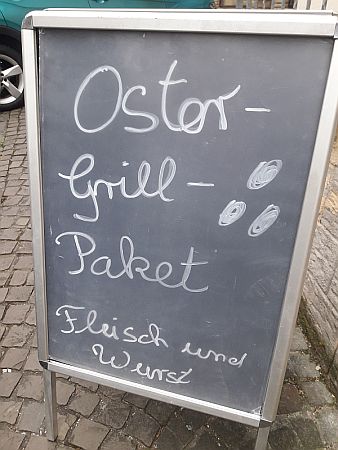 Oster-
Grill-
Paket
Fleisch und
Wurst